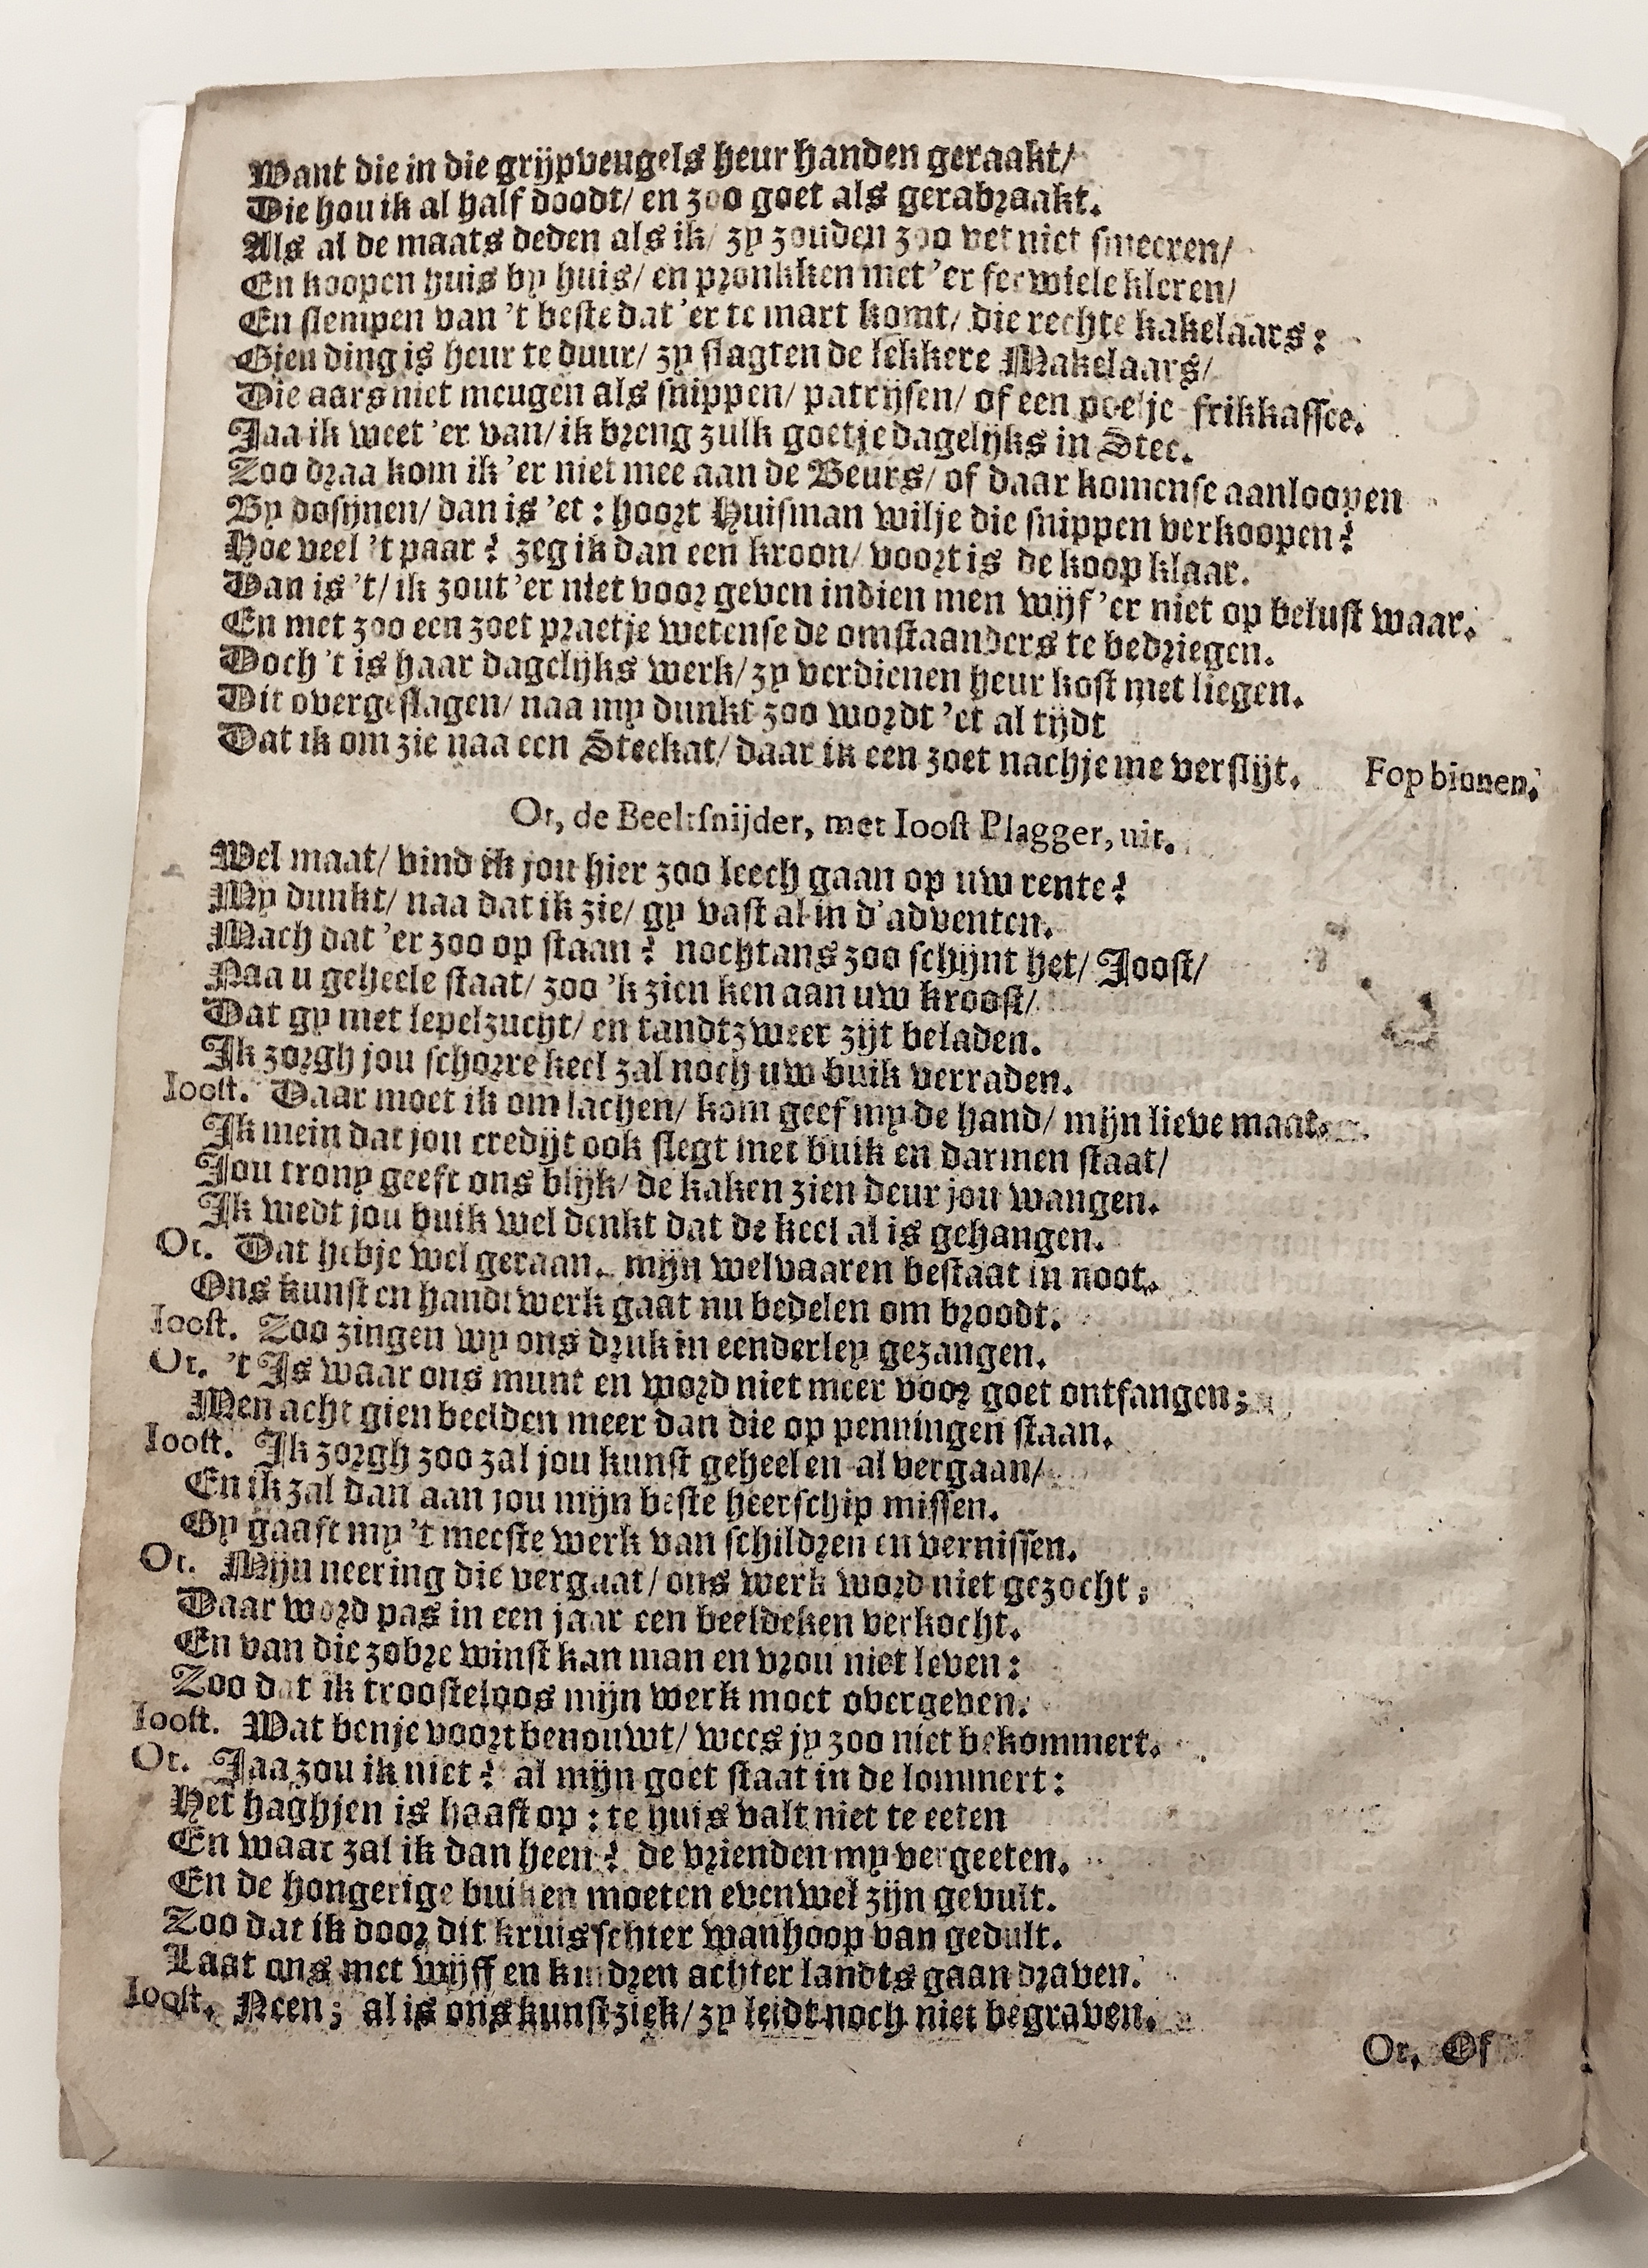 Want die in die grijpveugels heur handen geraakt/
Die hou ik al half doodt/ en zoo goet als gerabraakt.
Als al de maats deden als ik/ zy zouden zoo vet niet smeeren/
En koopen huis by huis/ en pronkken met 'er fee wiele kleren/
En slempen van 't beste dat 'er te mart komt/ die rechte kakelaars:
Gien ding is heur te duur/ zy slagten de lekkere Makelaars/
Die aars niet meugen als snippen/ patrijsen/ of een poelje frikkassee.
Jaa ik weet 'er van/ ik breng zulk goetje dagelijks in Stee.
Zoo draa kom ik 'er niet mee aan de Beurs/ of daar komense aanloopen
By dosijnen/ dan is 'et: hoort Huisman wilje die snippen verkoopen?
Hoe veel 't paar? zeg ik dan een kroon/ voort is de koop klaar.
Dan is 't/ ik zout 'er niet voor geven indien men wijf 'er niet op belust waar.
En met zoo een zoet praetje wetense de omstaanders te bedriegen.
Doch 't is haar dagelijks werk/ zy verdienen heur kost met liegen.
Dit overgeslagen/ naa my dunkt zoo wordt 'et al tijdt
Dat ik om zie naa een Steekat/ daar ik een zoet nachje me verslijt. Fop binnen.
Or, de Beeltsnijder, met Ioost Plagger, uit.
Wel maat/ vind ik jou hier zoo leech gaan op uw rente?
My dunkt/ naa dat ik zie/ gy vast al in d'adventen.
Mach dat 'er zoo op staan? nochtans zoo schijnt het/ Joost/
Naa u geheele staat/ zoo 'k zien ken aan uw kroost/
Dat gy met lepelzucht/ en tandtzweer zijt beladen.
Ik zorgh jou schorre keel zal noch uw buik verraden.
Ioost. Daar moet ik om lachen/ kom geef my de hand/ mijn lieve maat.
Ik mein dat jou credijt ook slegt met buik en darmen staat/
Jou trony geeft ons blijk/ de kaken zien deur jou wangen.
Ik wedt jou buik wel denkt dat de keel al is gehangen.
Or. Dat hebje wel geraan. mijn welvaaren bestaat in noot.
Ons kunst en handtwerk gaat nu bedelen om broodt.
Ioost. Zoo zingen wy ons druk in eenderley gezangen.
Or. 't Is waar ons munt en word niet meer voor goet ontfangen;
Men acht gien beelden meer dan die op penningen staan.
Ioost. Ik zorgh zoo zal jou kunst geheel en al vergaan/
En ik zal dan aan jou mijn beste heerschip missen.
Gy gaaft my 't meeste werk van schildren en vernissen.
Or. Mijn neering die vergaat/ ons werk word niet gezocht;
Daar word pas in een jaar een beeldeken verkocht.
En van die zobre winst kan man en vrou niet leven:
Zoo dat ik troosteloos mijn werk moet overgeven.
Ioost. Wat benje voort benouwt/ wees jy zoo niet bekommert.
Or. Jaa zou ik niet? al mijn goet staat in de lommert:
Het haghjen is haast op: te huis valt niet te eeten
En waar zal ik dan heen? de vrienden my vergeeten.
En de hongerige buiken moeten evenwel zijn gevult.
Zoo dat ik door dit kruis schier wanhoop van gedult.
Laat ons met wijff en kindren achter landts gaan draven.
Ioost. Neen; al is ons kunst ziek/ zy leidt noch niet begraven.
Or. Of